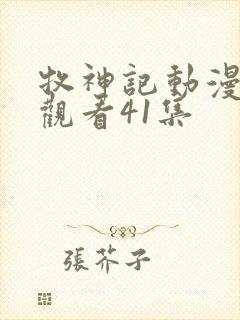 牧神記動漫
觀看41集
張芥子